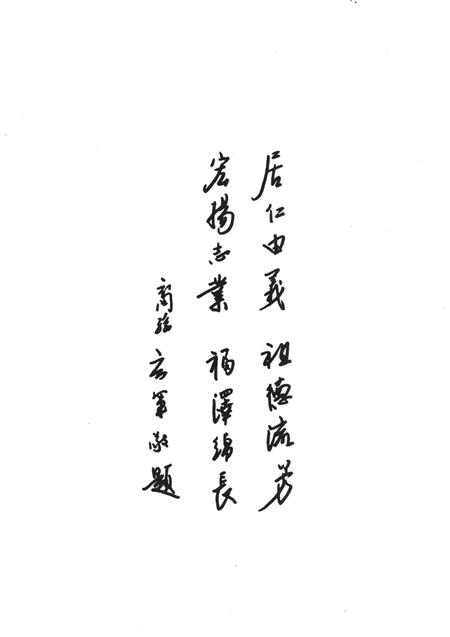 居仁由義 祖德流芳
宏揚志業 福澤綿長
敬題